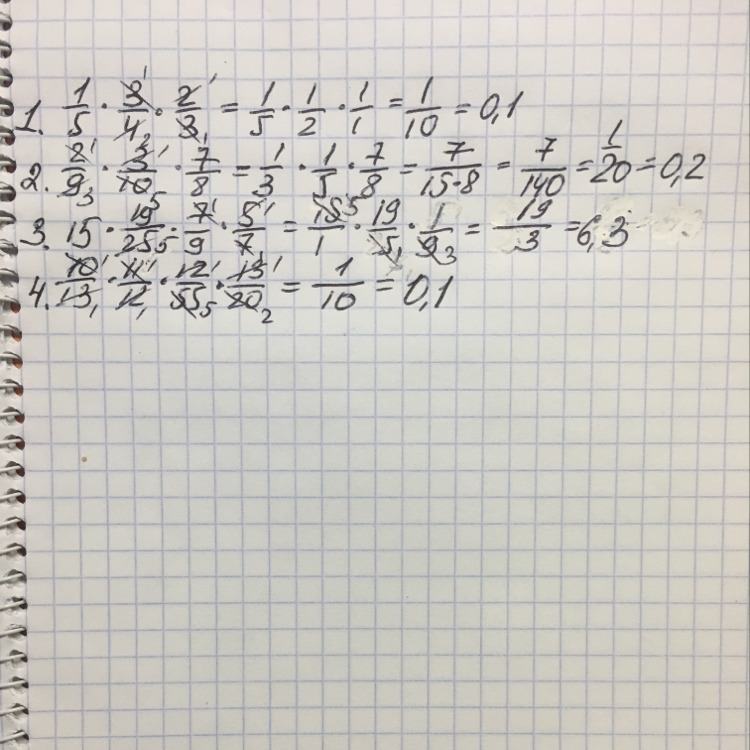 1. 1/5 · 3̸¹/4̸₂ · 2̸¹/3̸₁ = 1/5 · 1/2 · 1/1 = 1/10 = 0,1
2. 2̸¹/9̸₃ · 3̸¹/1̸0̸₅ · 7/8 = 1/3 · 1/5 · 7/8 = 7/15·8 = 7/140 = 1/20 = 0,2
3. 15 · 19/2̸5̸₅ · 7̸¹/9 · 5̸¹/7̸ = 1̸5̸⁵/1 · 19/5̸₁ · 1/9̸₃ = 19/3 = 6,3
4. 1̸0̸¹/1̸3̸₁ · 1̸1̸¹/1̸2̸₁ · 1̸2̸¹/5̸5̸₅ · 1̸3̸¹/2̸0̸₂ = 1/10 = 0,1